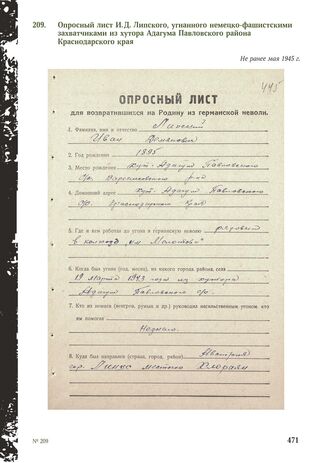 209. Опросный лист И.Д. Липского, угнанного немецко-фашистскими
захватчиками из хутора Адагума Павловского района
Краснодарского края
Не ранее мая 1945 г.
445
ОПРОСНЫЙ ЛИСТ
для возвратившихся на Родину из германской неволи.
1. Фамилия, имя и отчество Липский
Иван
2. Год рождения 1895
3. Место рождения хут. Адагум Павловского
4. Домашний адрес хут. Адагум Павловского
Краснодарский Край
5. Где и кем работал до угона в германскую неволю рядовой
в колхозе им Молотова
6. Когда был угнан (год, месяц), из какого города, района, села
19 марта 1943 года из хутора
Адагум Павловского
7. Кто из немцев (венгров, румын и др.) руководил насильственным угоном, кто
им помогал
Немцы.
8. Куда был направлен (страна, город, район) Австрия
гор. Линц местечко
№ 209
471